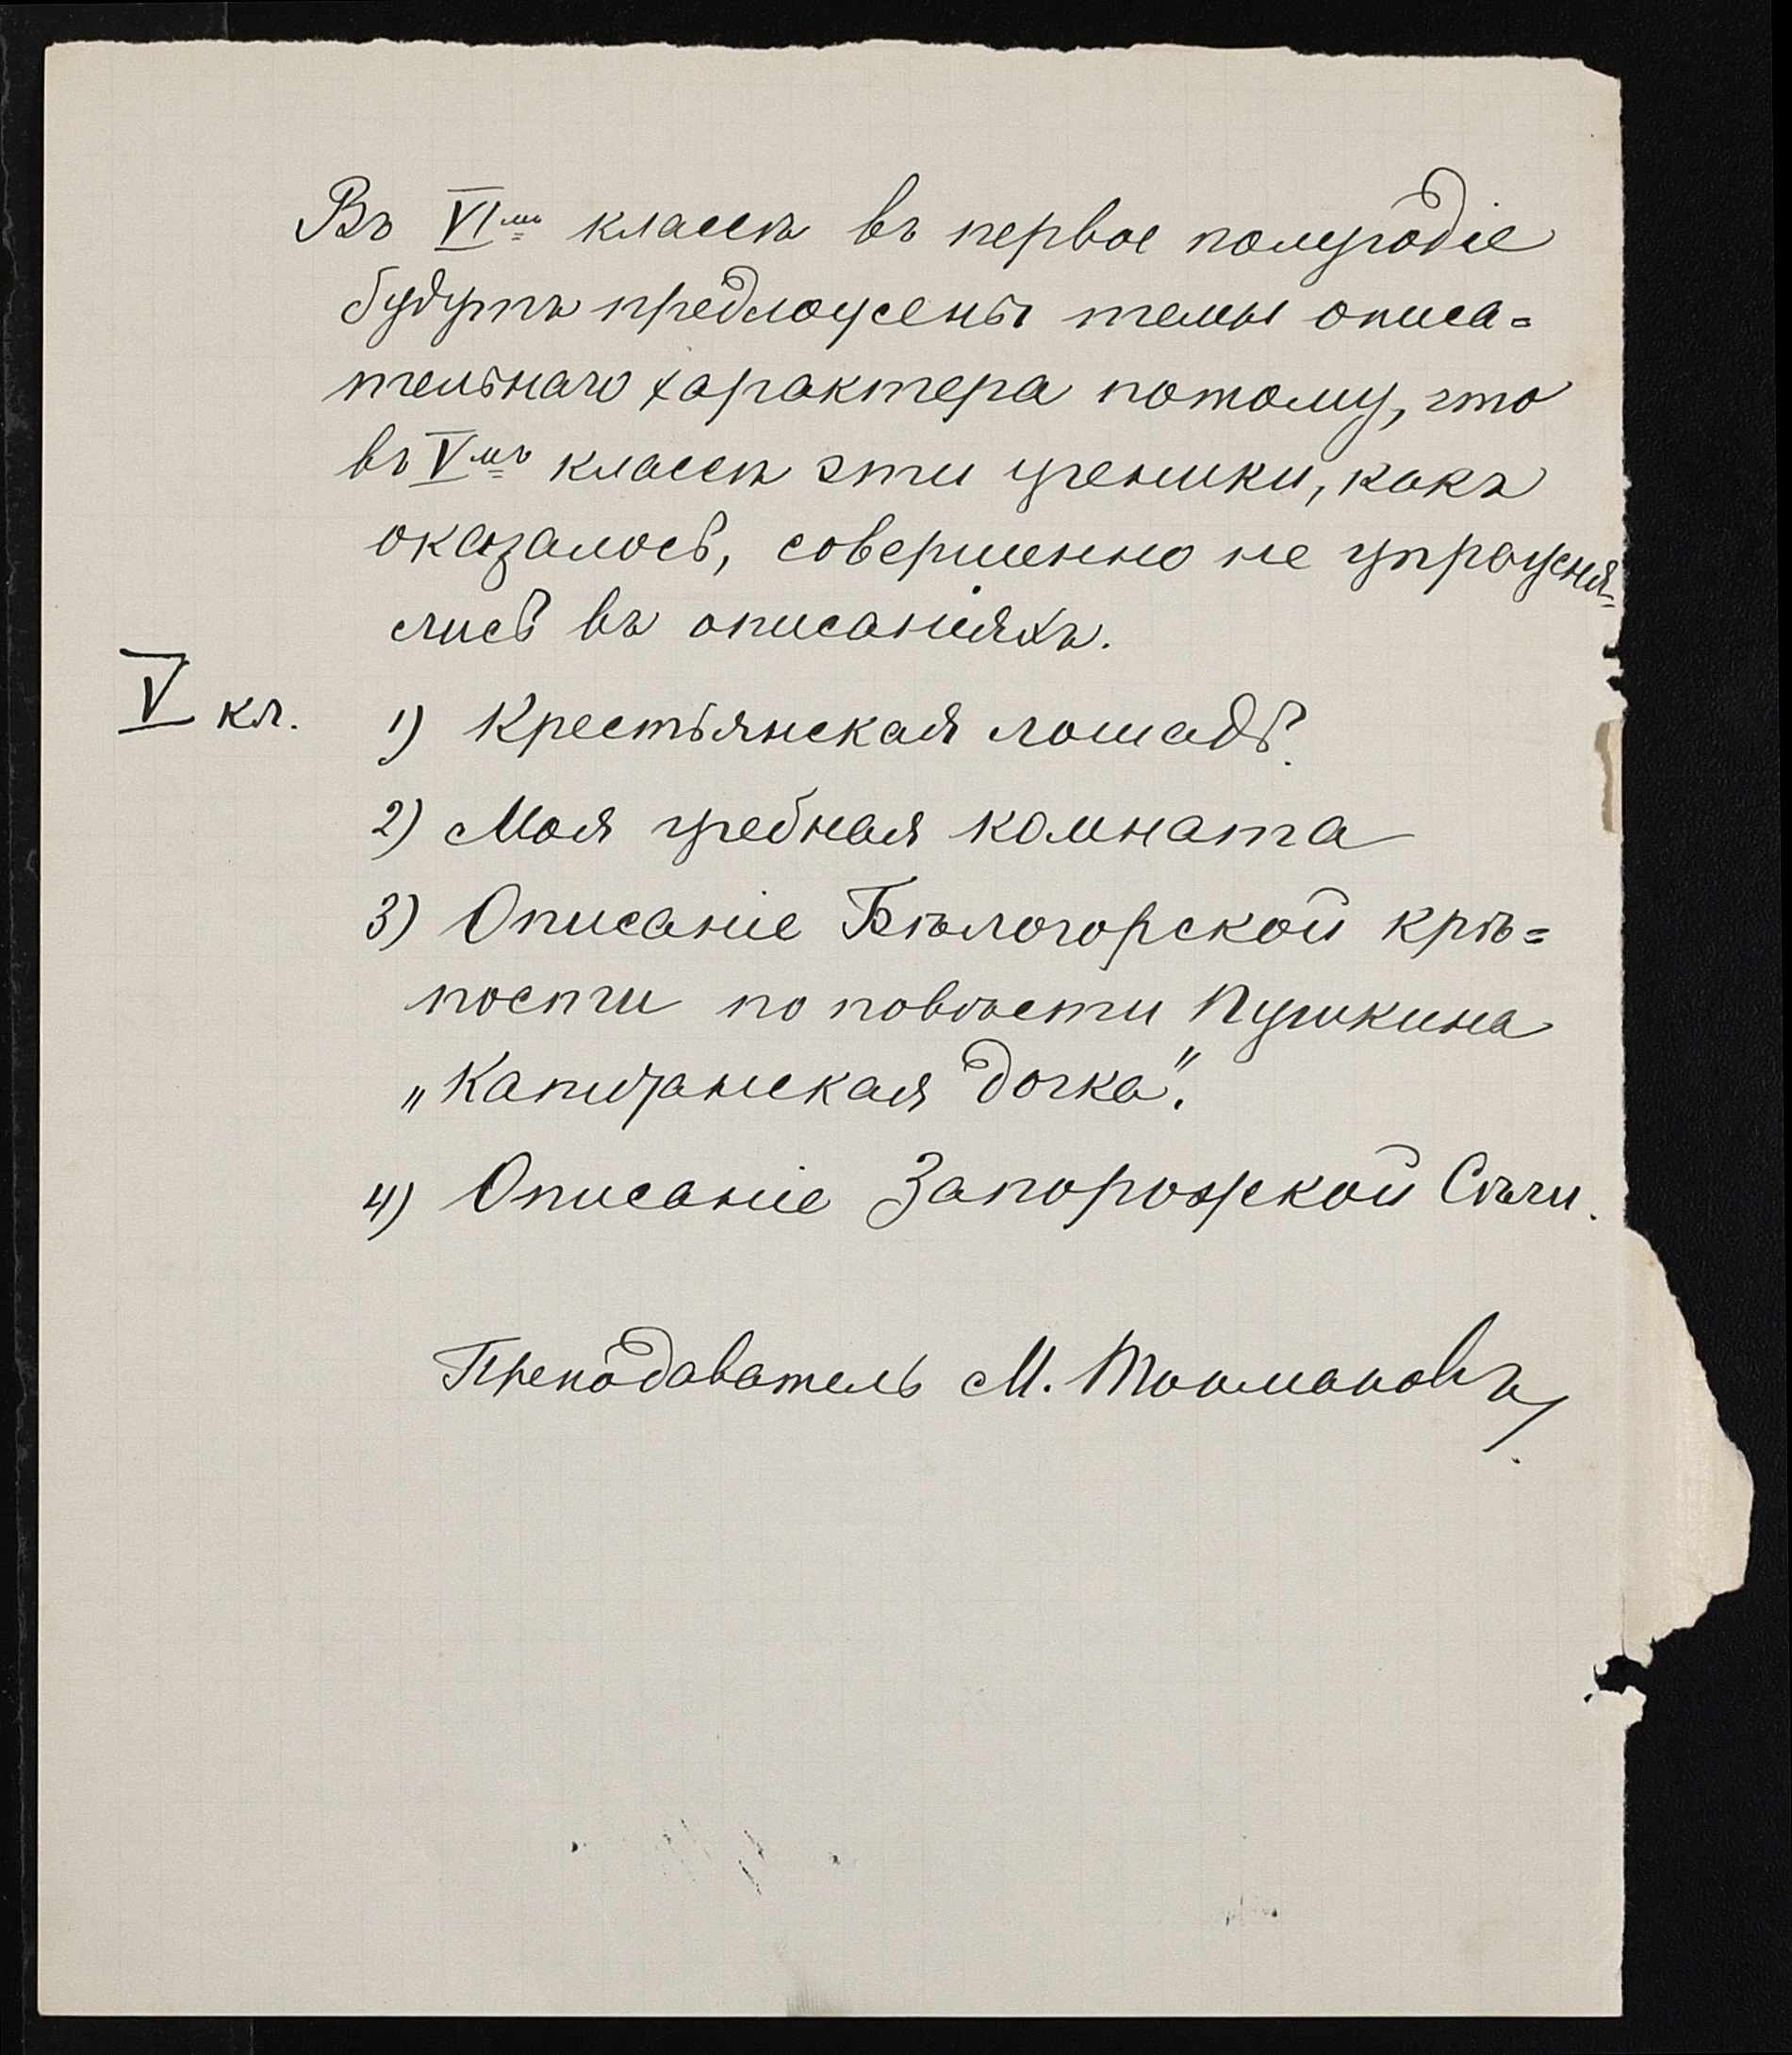 Въ VIмъ классѣ въ первое полугодіе
будутъ предложены темы описа=
тельнаго характера потому, что
въ Vмъ классѣ эти ученики, какъ
оказалось, совершенно не упражня=
лись въ описаніяхъ.
V кл. 1) Крестьянская лошадь.
2) Моя учебная комната
3) Описаніе Бѣлогорской крѣ=
пости по повѣсти Пушкина
„Капитанская дочка".
4) Описаніе Запорожской Сѣчи.
Преподаватель М.